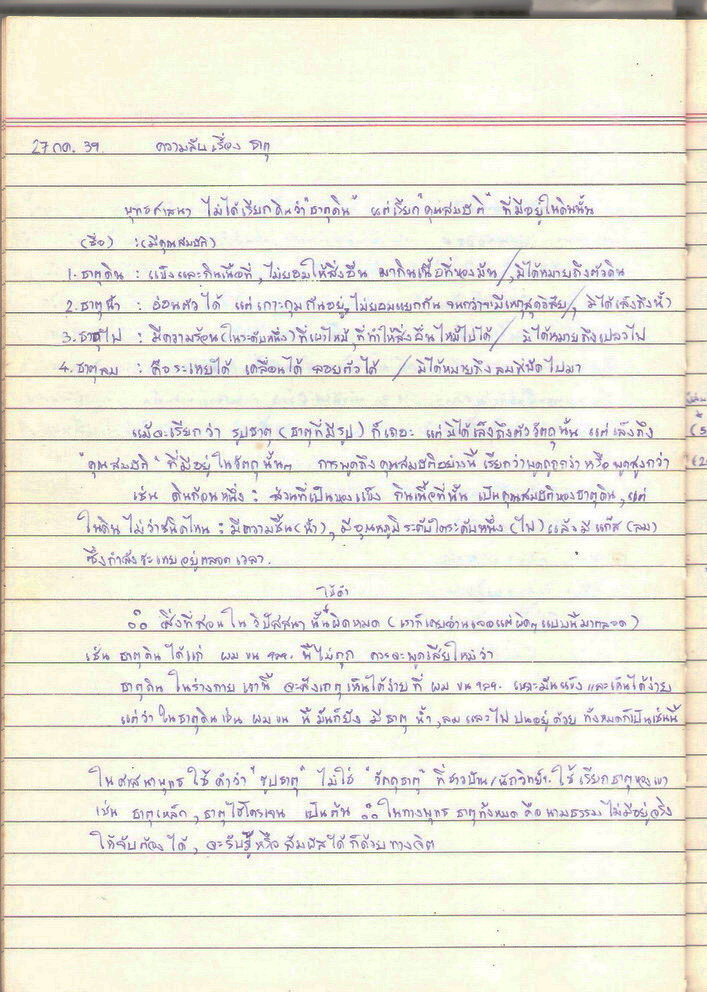 27 กค. 39. ความลับ เรื่อง ธาตุ
พุทธศาสนา ไม่ได้เรียกดินว่า "ธาตุดิน" แต่เรียก "คุณสมบัติ" ที่มีอยู่ในดินนั้น
(ชื่อ) : (มีคุณสมบัติ)
1. ธาตุดิน : แข็งและกินเนื้อที่, ไม่ยอมให้สิ่งอื่น มากินเนื้อที่ของมัน / มิได้หมายถึงตัวดิน
2. ธาตุน้ำ : อ่อนตัวได้ แต่เกาะกุมกันอยู่, ไม่ยอมแยกกัน จนกว่าจะมีเหตุสุดวิสัย / มิได้เล็งถึงน้ำ
3. ธาตุไฟ : มีความร้อน (ในระดับหนึ่ง) ที่เผาไหม้, ที่ทำให้สิ่งอื่นไหม้ไปได้ / มิได้หมายถึงเปลวไฟ
4. ธาตุลม : คือระเหยได้ เคลื่อนได้ ลอยตัวได้ / มิได้หมายถึงลมที่พัดไปมา
แม้จะเรียกว่า รูปธาตุ (ธาตุที่มีรูป) ก็เถอะ แต่มิได้เล็งถึงตัววัตถุนั้น แต่เล็งถึง
"คุณสมบัติ" ที่มีอยู่ในวัตถุนั้นๆ การพูดถึงคุณสมบัติอย่างนี้ เรียกว่าพูดถูกกว่า หรือ พูดสูงกว่า
เช่น ดินก้อนหนึ่ง : ส่วนที่เป็นของแข็ง กินเนื้อที่นั้น เป็นคุณสมบัติของธาตุดิน, แต่
ในดิน ไม่ว่าชนิดไหน : มีความชื้น (น้ำ), มีอุณหภูมิระดับใดระดับหนึ่ง (ไฟ) แล้วมีแก๊ส (ลม)
ซึ่งกำลังระเหยอยู่ตลอดเวลา.
ใช้คำ
∴ สิ่งที่สอนใน วิปัสสนา นั้นผิดหมด (เราก็เคยอ่านเจอแต่ผิดๆ แบบนี้มาตลอด)
เช่น ธาตุดินได้แก่ ผม ขน ฯลฯ. นี้ไม่ถูก ควรจะพูดเสียใหม่ว่า
ธาตุดิน ในร่างกายเรานี้ จะสังเกตุเห็นได้ง่ายที่ ผม ขน ฯลฯ. เพราะมันแข็ง และเห็นได้ง่าย
แต่ว่า ในธาตุดินเช่น ผม ขน นี้ มันก็ยัง มีธาตุ น้ำ, ลม และไฟ ปนอยู่ด้วย ทั้งหมดก็เป็นเช่นนี้
ในศาสนาพุทธ ใช้คำว่า "รูปธาตุ" ไม่ใช่ "วัตถุธาตุ" ที่ชาวบ้าน/นักวิทย์ฯ. ใช้เรียกธาตุของเขา
เช่น ธาตุเหล็ก, ธาตุไฮโดรเจน เป็นต้น ∴ ในทางพุทธ ธาตุทั้งหมด คือ นามธรรม ไม่มีอยู่จริง
ให้จับต้องได้, จะรับรู้หรือสัมผัสได้ก็ด้วยทางจิต